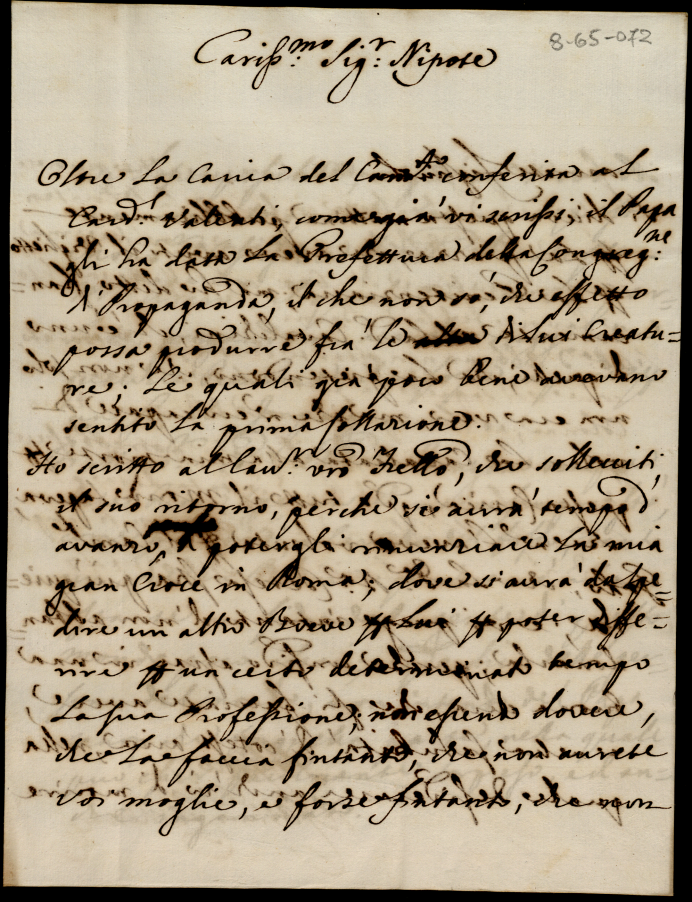 8-65-072
Cariss:mo Sig:r Nipote
Oltre La Carica del Cam:to conferita al
Card:l Valenti, come già vi scrissi, il Papa
gli hà data La Prefettura della Congreg:ne
di Propaganda, il che non sò, che effetto
possa produrre frà le di lui Creatu=
re; Le quali già poco bene avevano
sentito La prima
Ho scritto al Cav:r vrõ Frello, che solleciti
il suo ritorno, perche si avrà tempo d'
avanzo, a potergli rinunziare La mia
gran Croce in Roma; dove si avrà da spe=
dire un altro Breve p Lui p poter diffe=
rire p un certo determinato tempo
La sua Professione, non essendo dovere,
che La faccia fintanto, che non avrete
voi moglie, e forse fintanto, che non